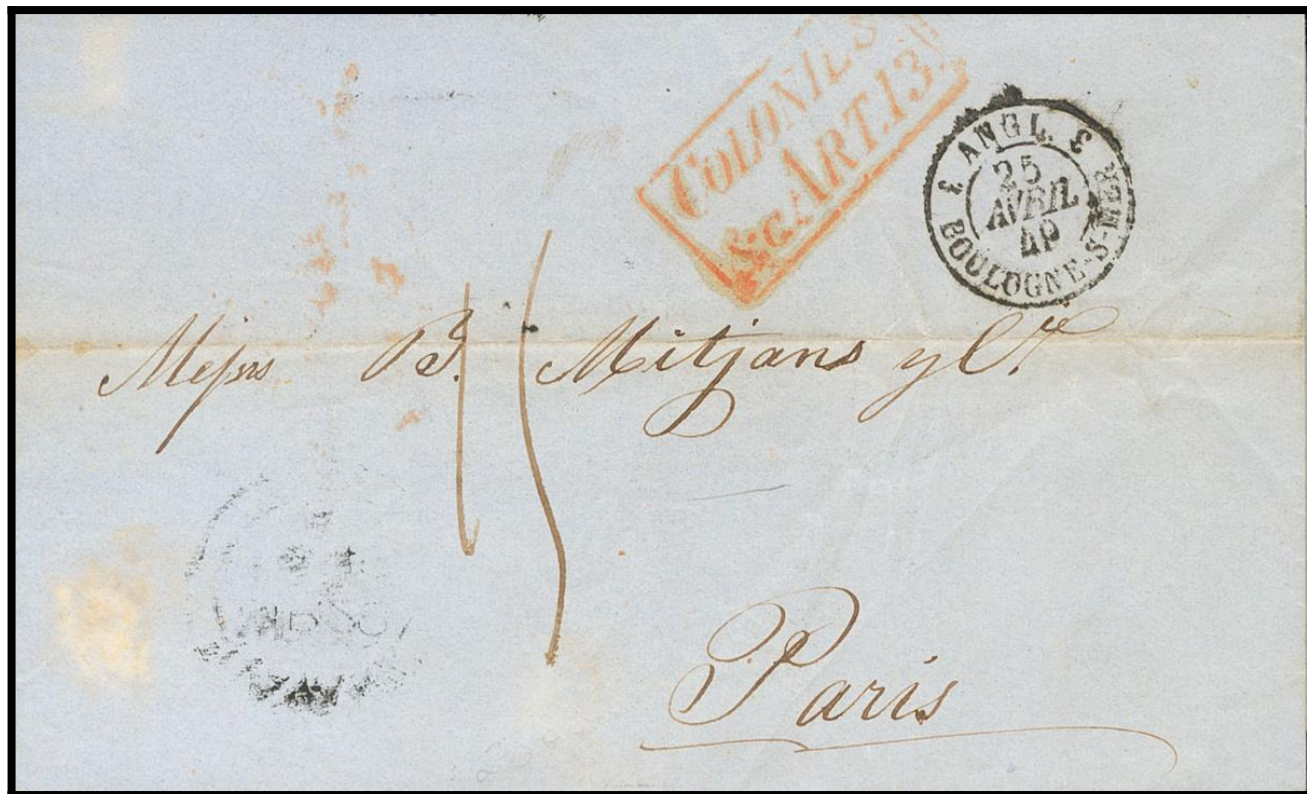 COLONIES
&c. ART. 13.
3 ANGL. 3
25
AVRIL
49
BOULOGNE-S-MER
Messrs B. Mitjans y Cª.
15
Paris